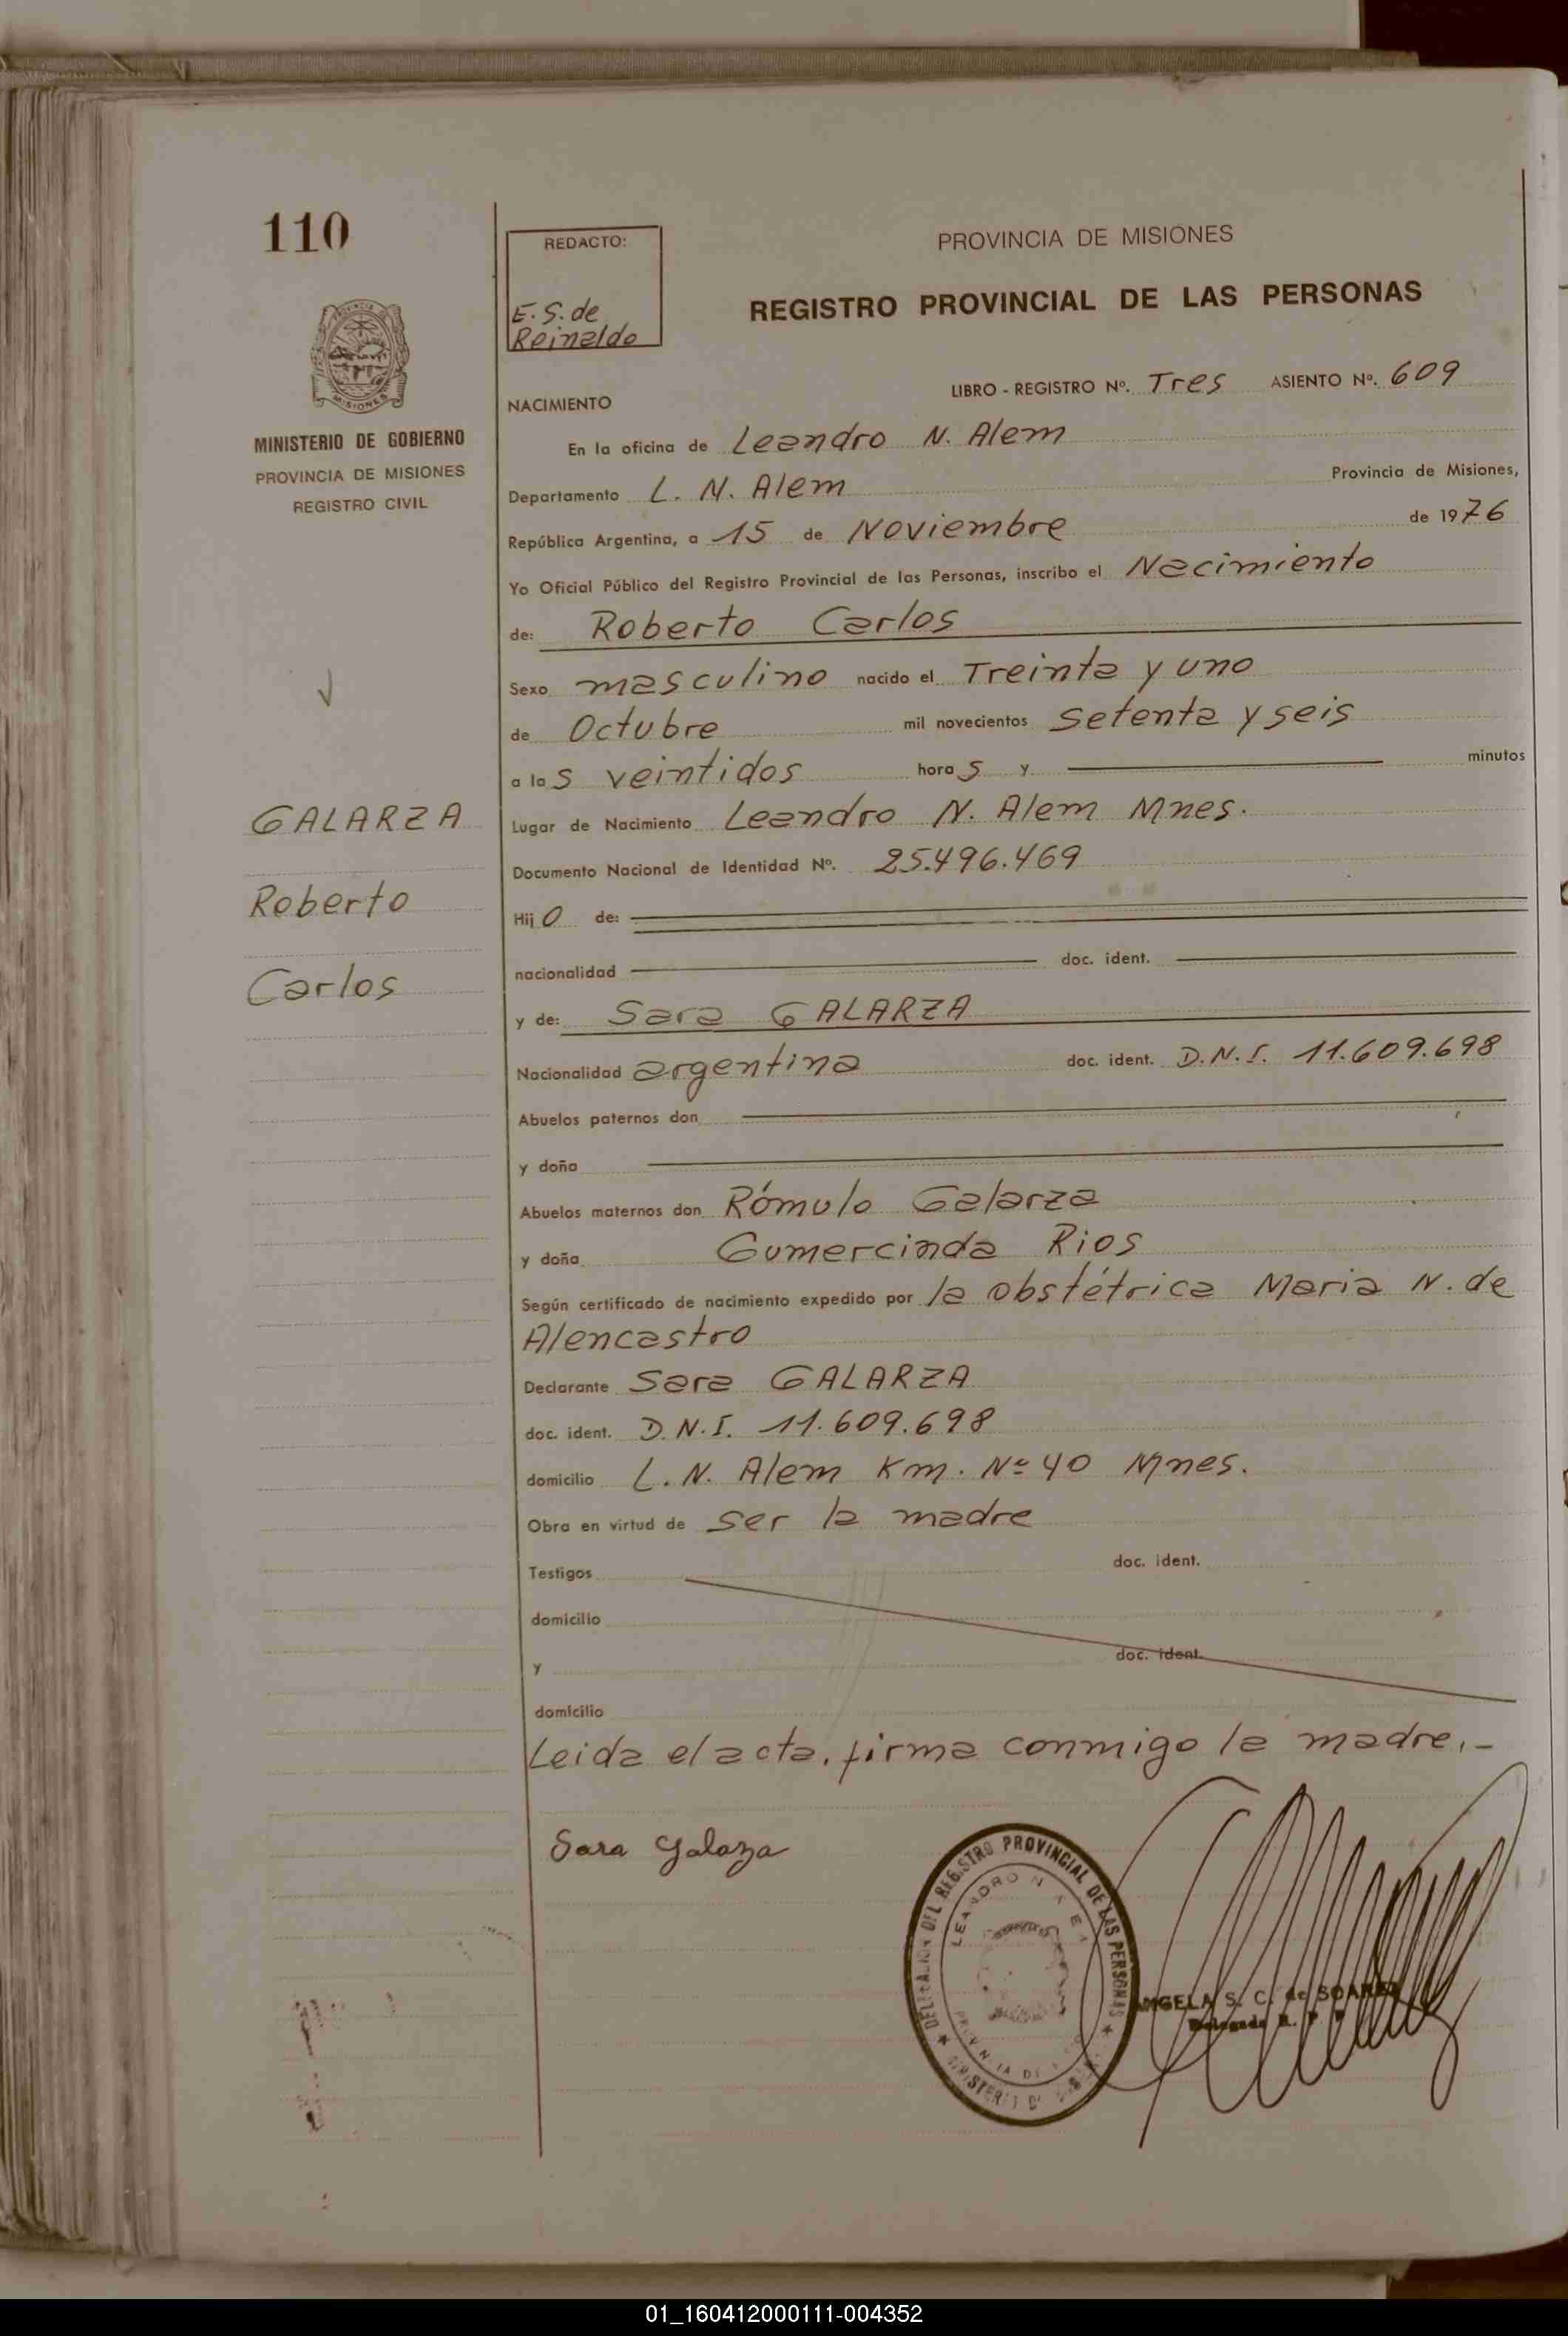 110
REDACTO:
E. S. de
Reinaldo
PROVINCIA DE MISIONES
REGISTRO PROVINCIAL DE LAS PERSONAS
MISIONES
MINISTERIO DE GOBIERNO
PROVINCIA DE MISIONES
REGISTRO CIVIL
LIBRO - REGISTRO Nº. Tres ASIENTO Nº. 609
NACIMIENTO
En la oficina de Leandro N. Alem
Departamento L. N. Alem Provincia de Misiones,
República Argentina, a 15 de Noviembre de 1976
Yo Oficial Público del Registro Provincial de las Personas, inscribo el Nacimiento
de: Roberto Carlos
Sexo masculino nacido el Treinta y uno
de Octubre mil novecientos setenta y seis
a las veintidos horas y minutos
GALARZA
Lugar de Nacimiento Leandro N. Alem Mnes.
Documento Nacional de Identidad Nº. 25.496.469
Roberto
Hijo de:
Carlos
nacionalidad doc. ident.
y de: Sara GALARZA
Nacionalidad argentina doc. ident. D.N.I. 11.609.698
Abuelos paternos don
y doña
Abuelos maternos don Rómulo Galarza
y doña Gumercinda Rios
Según certificado de nacimiento expedido por la obstétrica Maria N. de
Alencastro
Declarante Sara GALARZA
doc. ident. D.N.I. 11.609.698
domicilio L. N. Alem Km. Nº 40 Mnes.
Obra en virtud de ser la madre
Testigos doc. ident.
domicilio
y doc. ident.
domicilio
Leida el acta, firma conmigo la madre.-
Sara Galaza
DEL REGISTRO PROVINCIAL DE LAS PERSONAS
LEANDRO N
ANGELA S. C. de SOAREZ
Delegada R. P. P.
01_160412000111-004352